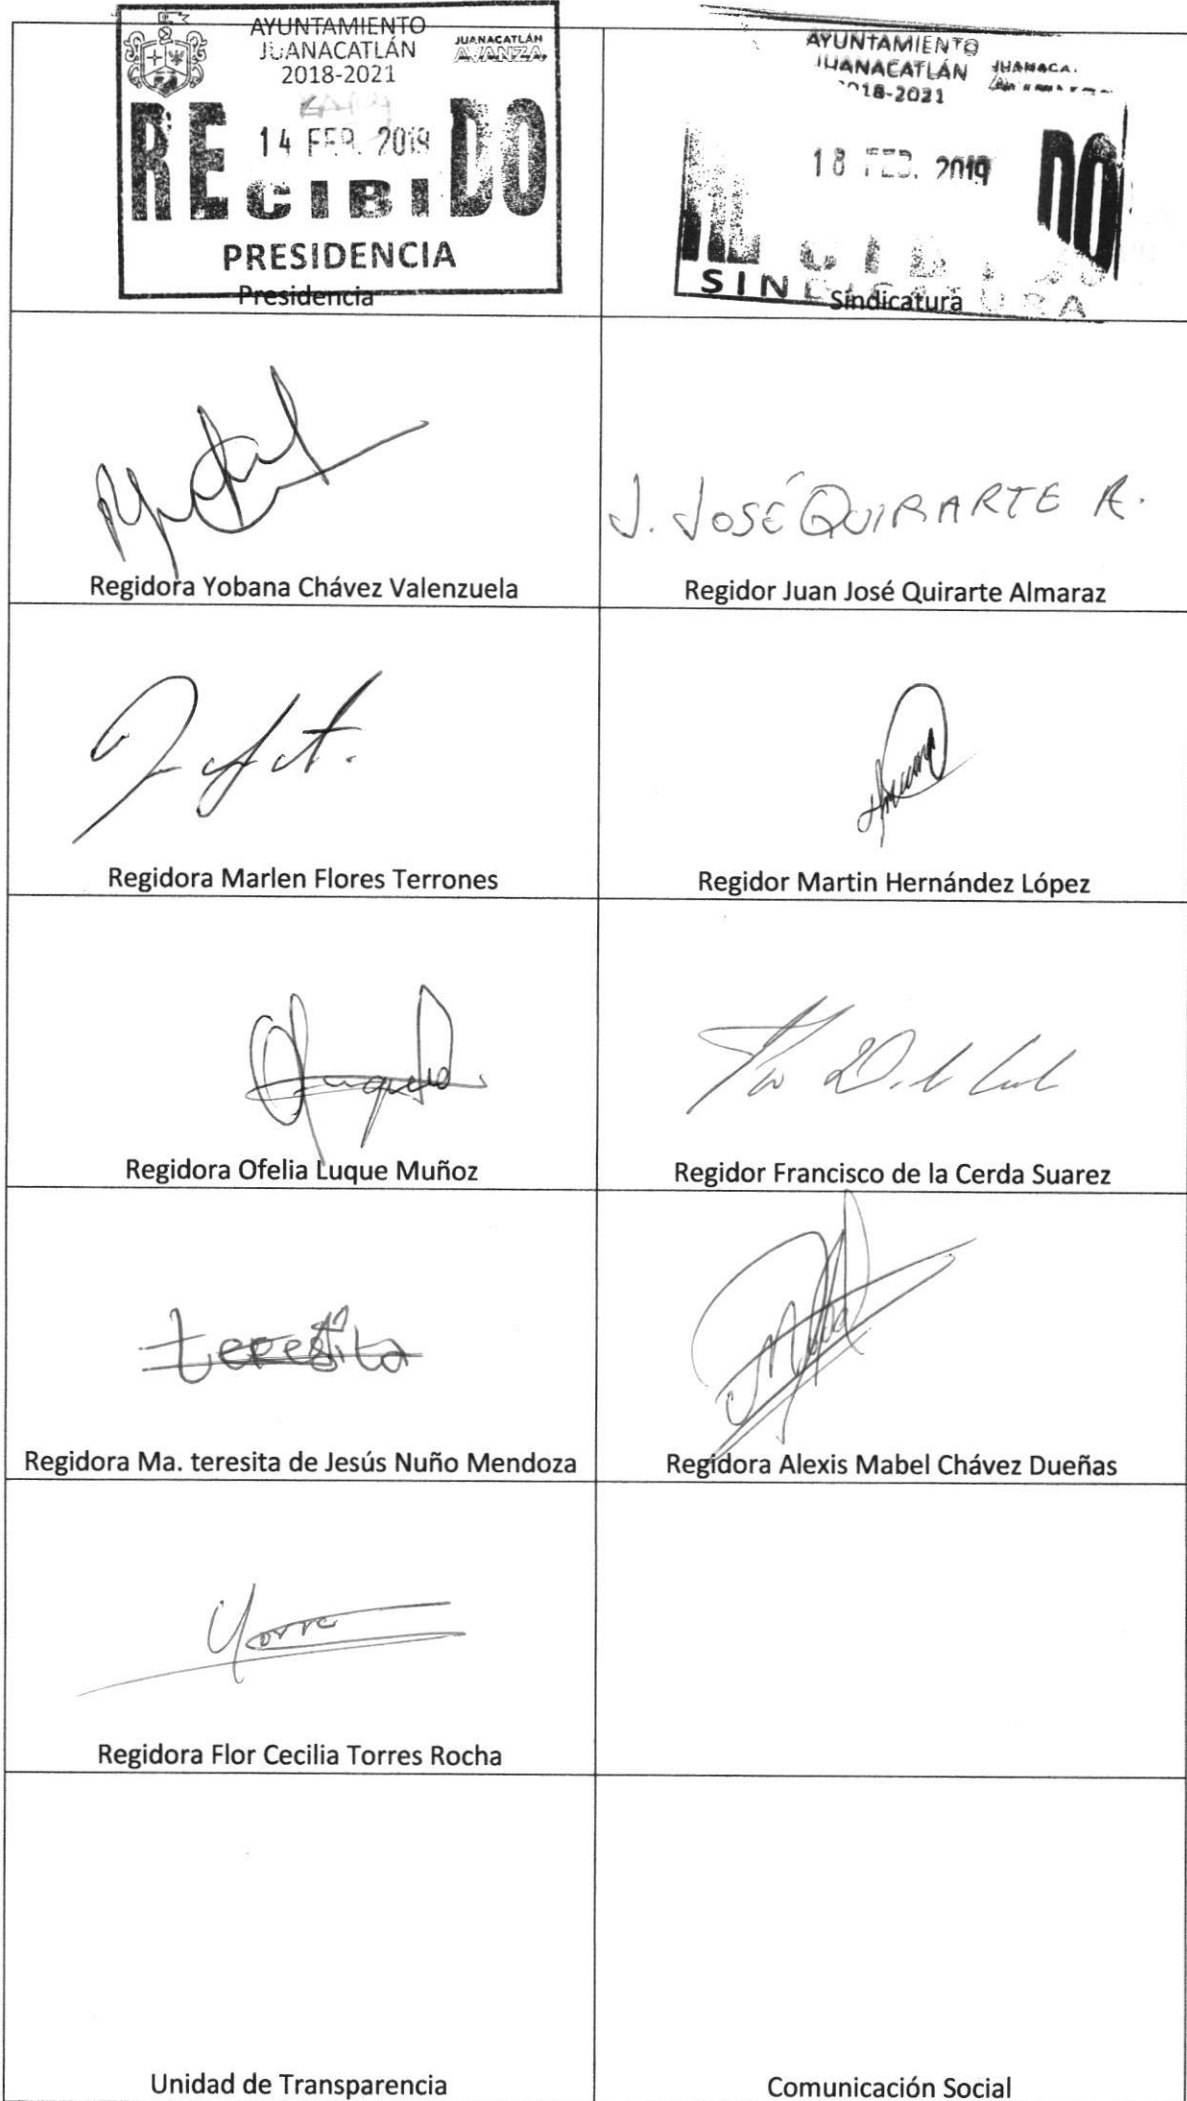 AYUNTAMIENTO
JUANACATLÁN
2018-2021
JUANACATLÁN
AVANZA
14 FEB. 2019
RECIBIDO
PRESIDENCIA
Presidencia
AYUNTAMIENTO
JUANACATLÁN
2018-2021
JUANACA
18 FEB. 2019
DO
SINDICATURA
Sindicatura
Regidora Yobana Chávez Valenzuela
J. JOSÉ QUIRARTE A.
Regidor Juan José Quirarte Almaraz
Regidora Marlen Flores Terrones
Regidor Martin Hernández López
Regidora Ofelia Luque Muñoz
Regidor Francisco de la Cerda Suarez
teresita
Regidora Ma. teresita de Jesús Nuño Mendoza
Regidora Alexis Mabel Chávez Dueñas
Regidora Flor Cecilia Torres Rocha
Unidad de Transparencia
Comunicación Social